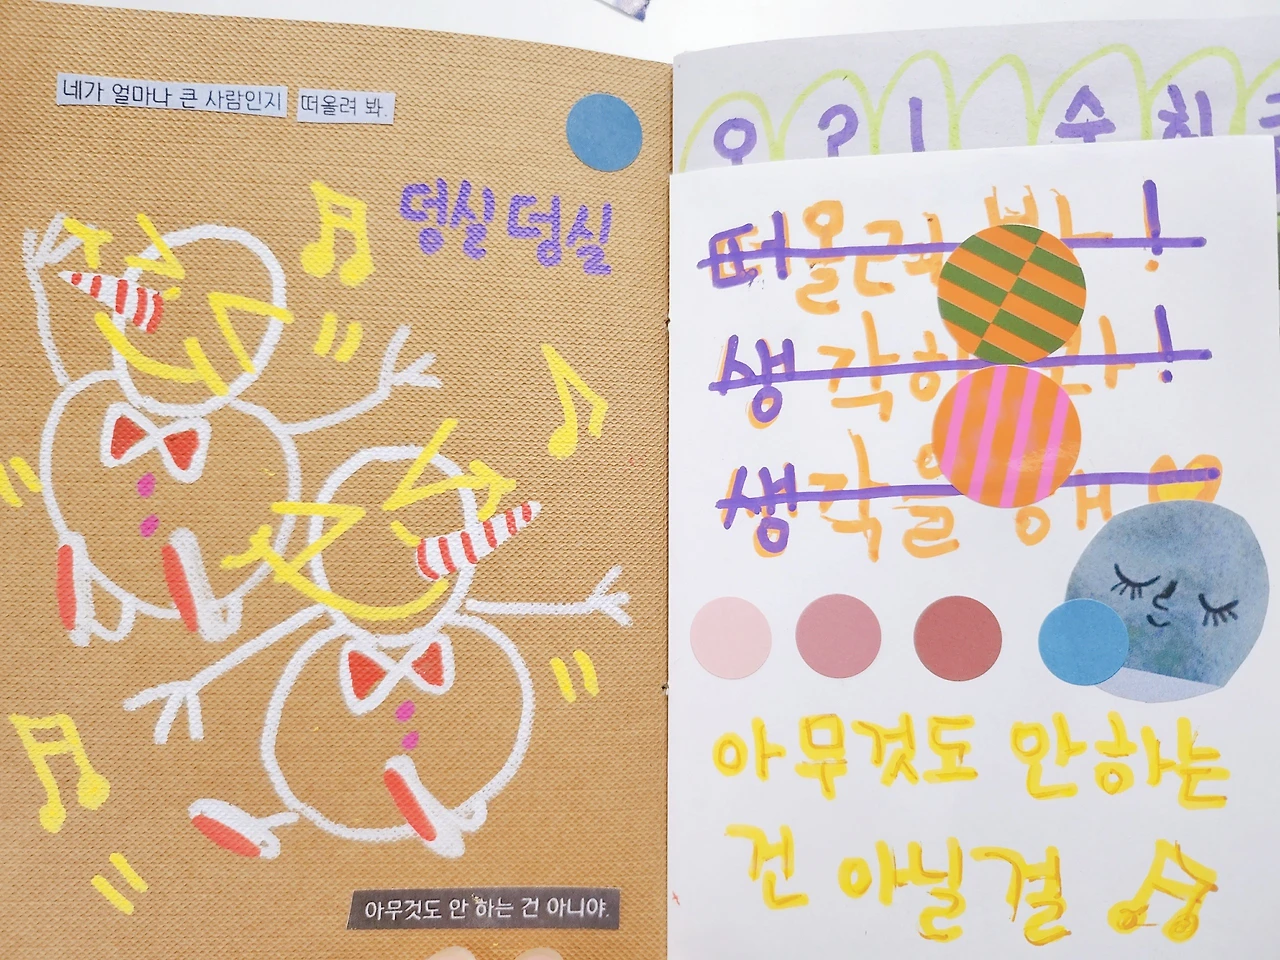 네가 얼마나 큰 사람인지 떠올려 봐.
덩실덩실
아무것도 안 하는 건 아니야.
떠올려 봐!
생각해 봐!
생각을 해
아무것도 안 하는
건 아닐걸